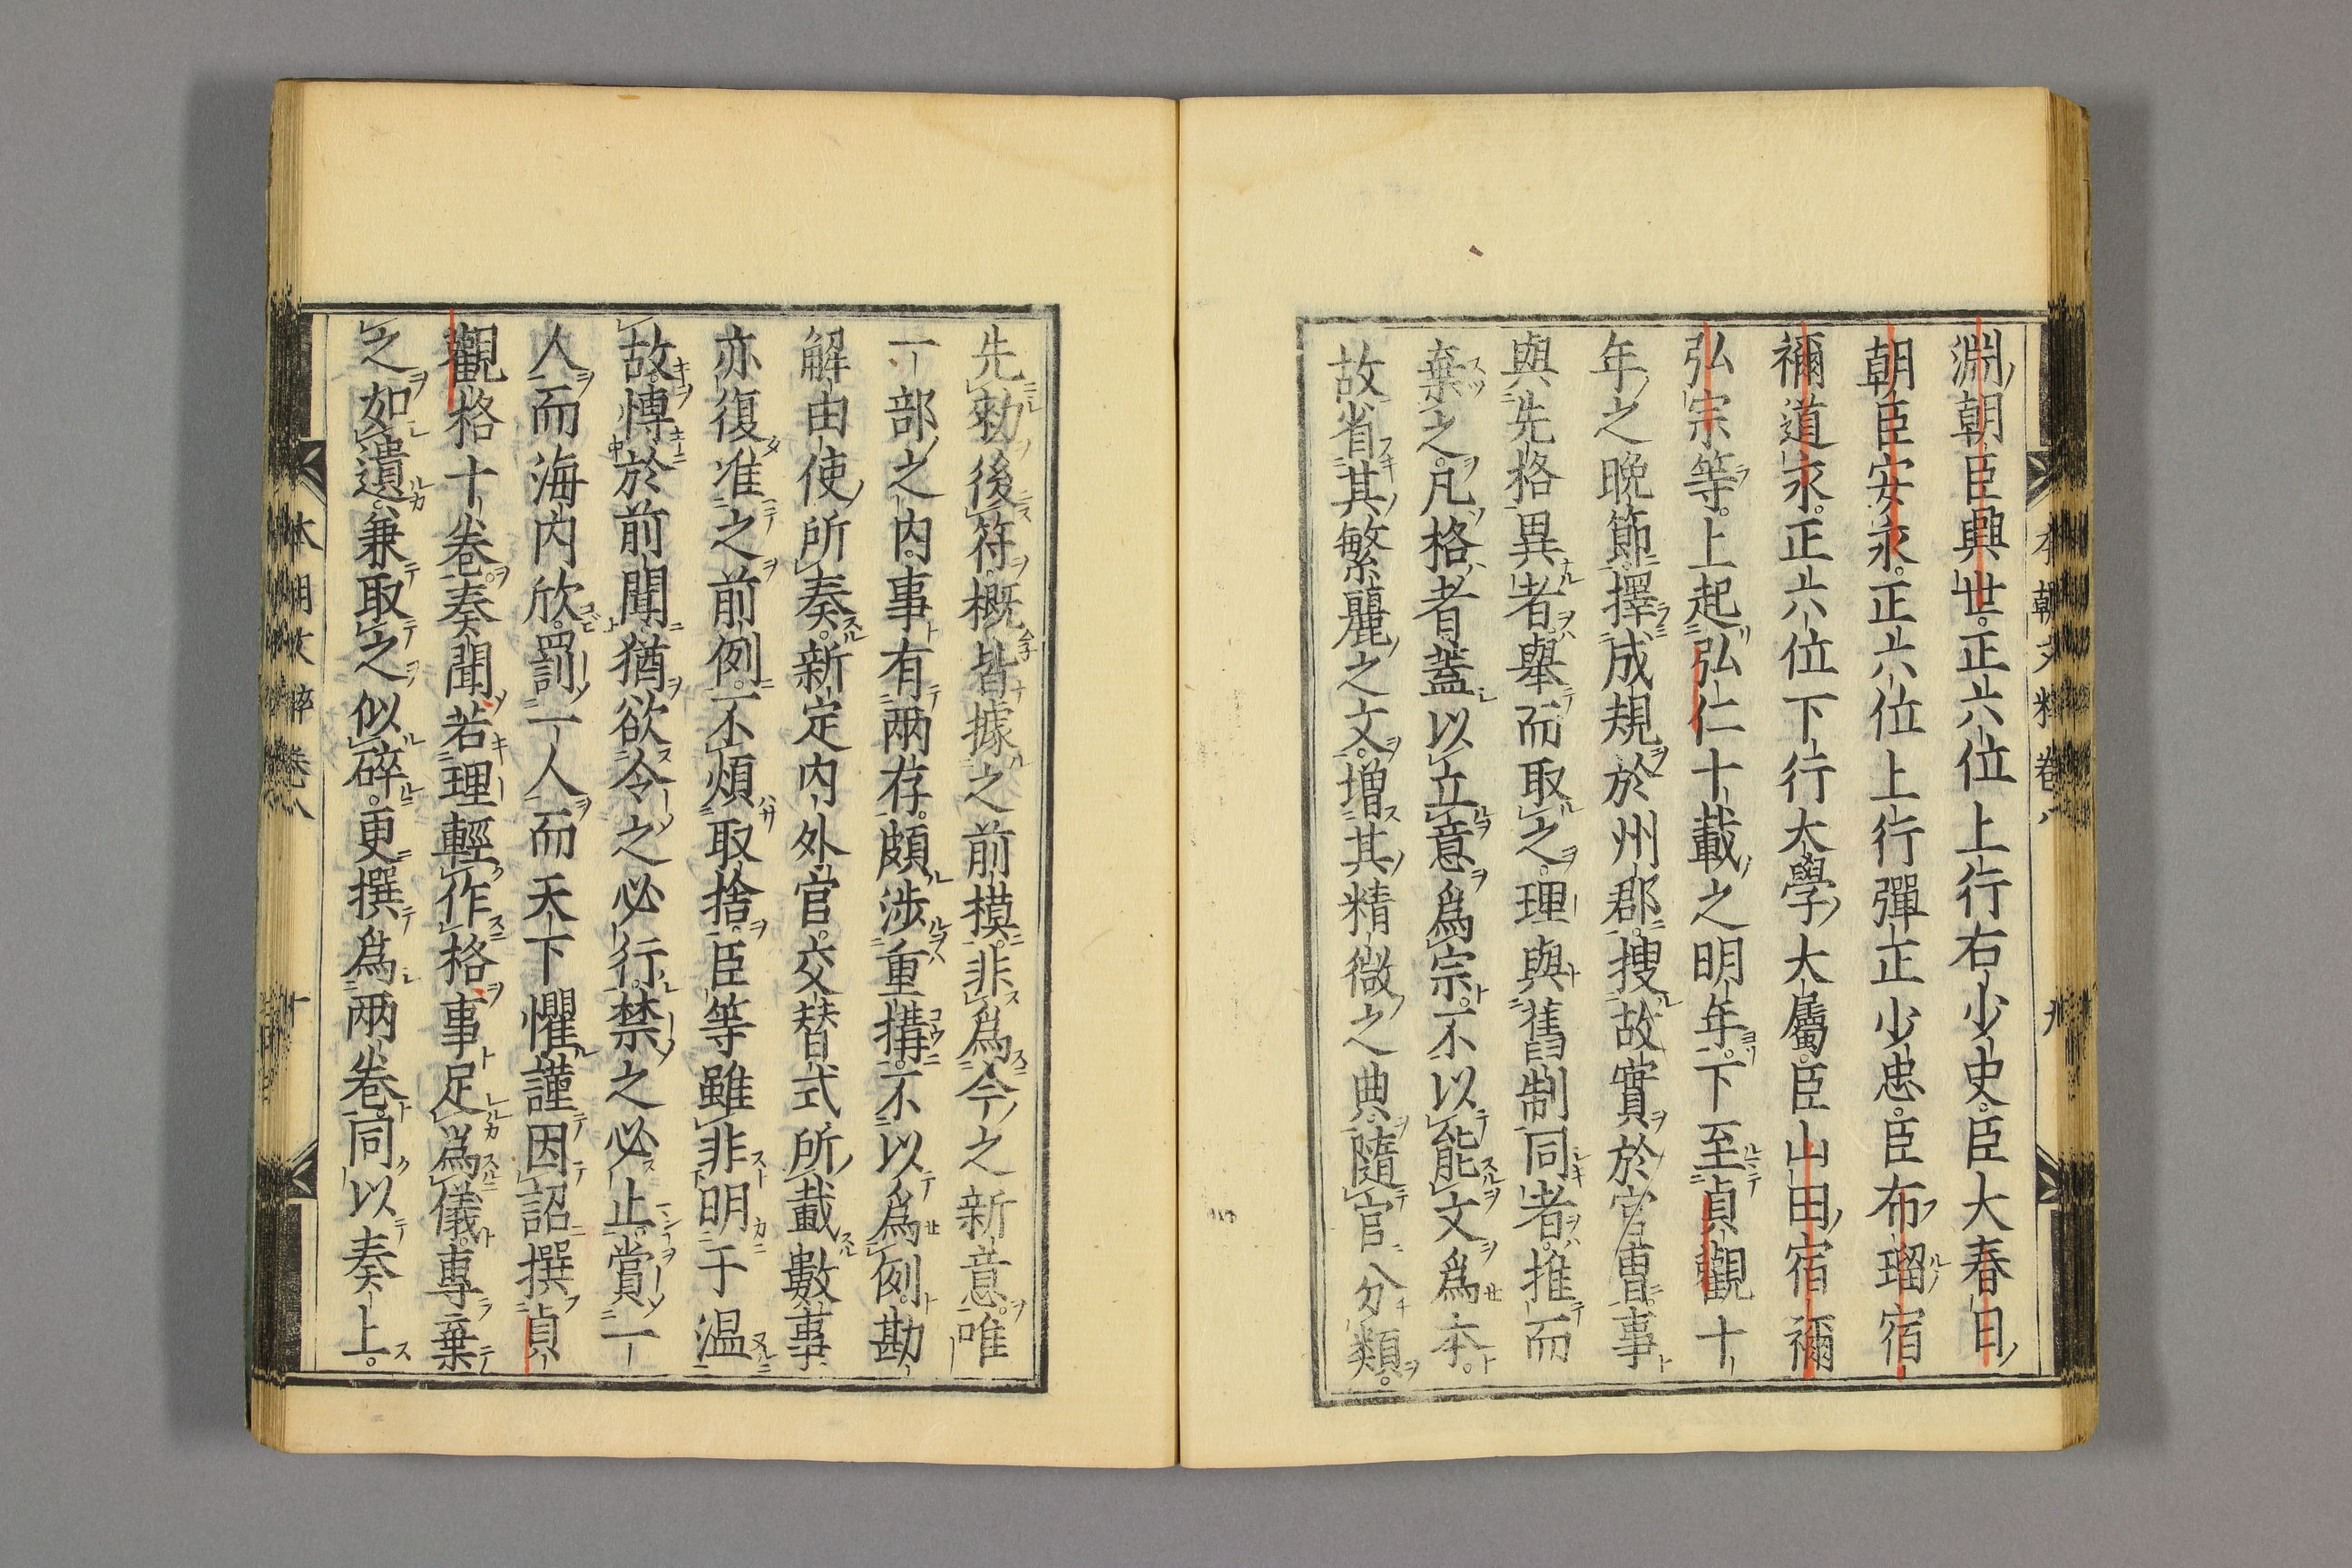 淵朝臣興世。正六位上行右少史。臣大春日
朝臣安永。正六位上行彈正少忠。臣布瑠宿
禰道永。正六位下行大學大屬。臣山田宿禰
弘宗等。上起弘仁十載之明年。下至貞觀十
年之晩節。擇成規於州郡。搜故實於官曹。事
與先格異者。擧而取之。理與舊制同者。推而
棄之。凡格者蓋以立意爲宗。不以能文爲本。
故省其繁麗之文。增其精微之典。隨官分類。
本朝文粹卷八
九
先勅後符。概皆據之前摸。非爲今之新意。唯
一部之内。事有兩存。頗涉重構。不以爲例。勘
解由使所奏。新定内外官。交替式所載數事
亦復准之前例。不煩取捨。臣等雖非明于温
故。愽於前聞。猶欲令之必行。禁之必止。賞一
人而海内欣。罰一人而天下懼。謹因詔撰貞
觀格十卷。奏聞若理輕作格。事足爲儀。專棄
之如遺。兼取之似碎。更撰爲兩卷。同以奏上。
本朝文粹卷八
十